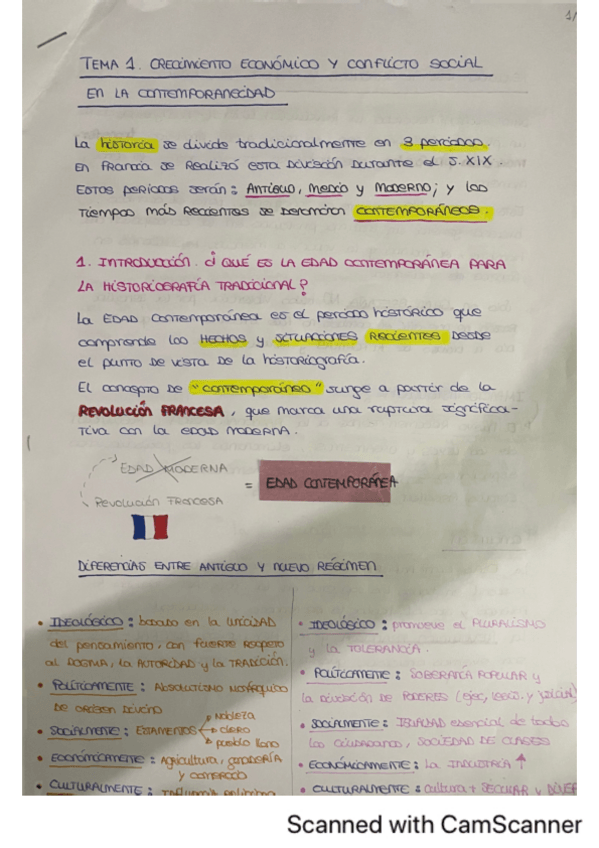 1/
TEMA 1. CRECIMIENTO ECONÓMICO Y CONFLICTO SOCIAL
EN LA CONTEMPORANEIDAD
La historia se divide tradicionalmente en 3 periodos.
En Francia se realizó esta división durante el S. XIX.
Estos periodos serán: Antiguo, medio y moderno; y los
tiempos más recientes se denominan CONTEMPORÁNEOS.
1. INTRODUCCIÓN. ¿QUÉ ES LA EDAD CONTEMPORÁNEA PARA
LA HISTORIOGRAFÍA TRADICIONAL?
La EDAD contemporánea es el periodo histórico que
comprende los HECHOS y SITUACIONES RECIENTES desde
el punto de vista de la historiografía.
El concepto de "contemporáneo" surge a partir de la
REVOLUCIÓN FRANCESA, que marca una ruptura significa-
tiva con la EDAD MODERNA.
EDAD MODERNA
= EDAD CONTEMPORÁNEA
Revolución Francesa
DIFERENCIAS ENTRE ANTIGUO Y NUEVO RÉGIMEN
• IDEOLÓGICO: basado en la UNIDAD
del pensamiento, con fuerte respeto
al DOGMA, la AUTORIDAD y la TRADICIÓN.
• POLÍTICAMENTE: ABSOLUTISMO MONÁRQUICO
DE ORIGEN DIVINO
• SOCIALMENTE: ESTAMENTOS
nobleza
clero
pueblo llano
• ECONÓMICAMENTE: Agricultura, ganadería
y comercio
• CULTURALMENTE:
• IDEOLÓGICO: promueve el PLURALISMO
y la TOLERANCIA.
• POLÍTICAMENTE: SOBERANÍA POPULAR y
la división de PODERES (ejec, legisl. y judicial)
• SOCIALMENTE: IGUALDAD esencial de todos
los ciudadanos, SOCIEDAD DE CLASES
• ECONÓMICAMENTE: la INDUSTRIA ↑
• CULTURALMENTE: cultura + SECULAR y DIVER
Scanned with CamScanner